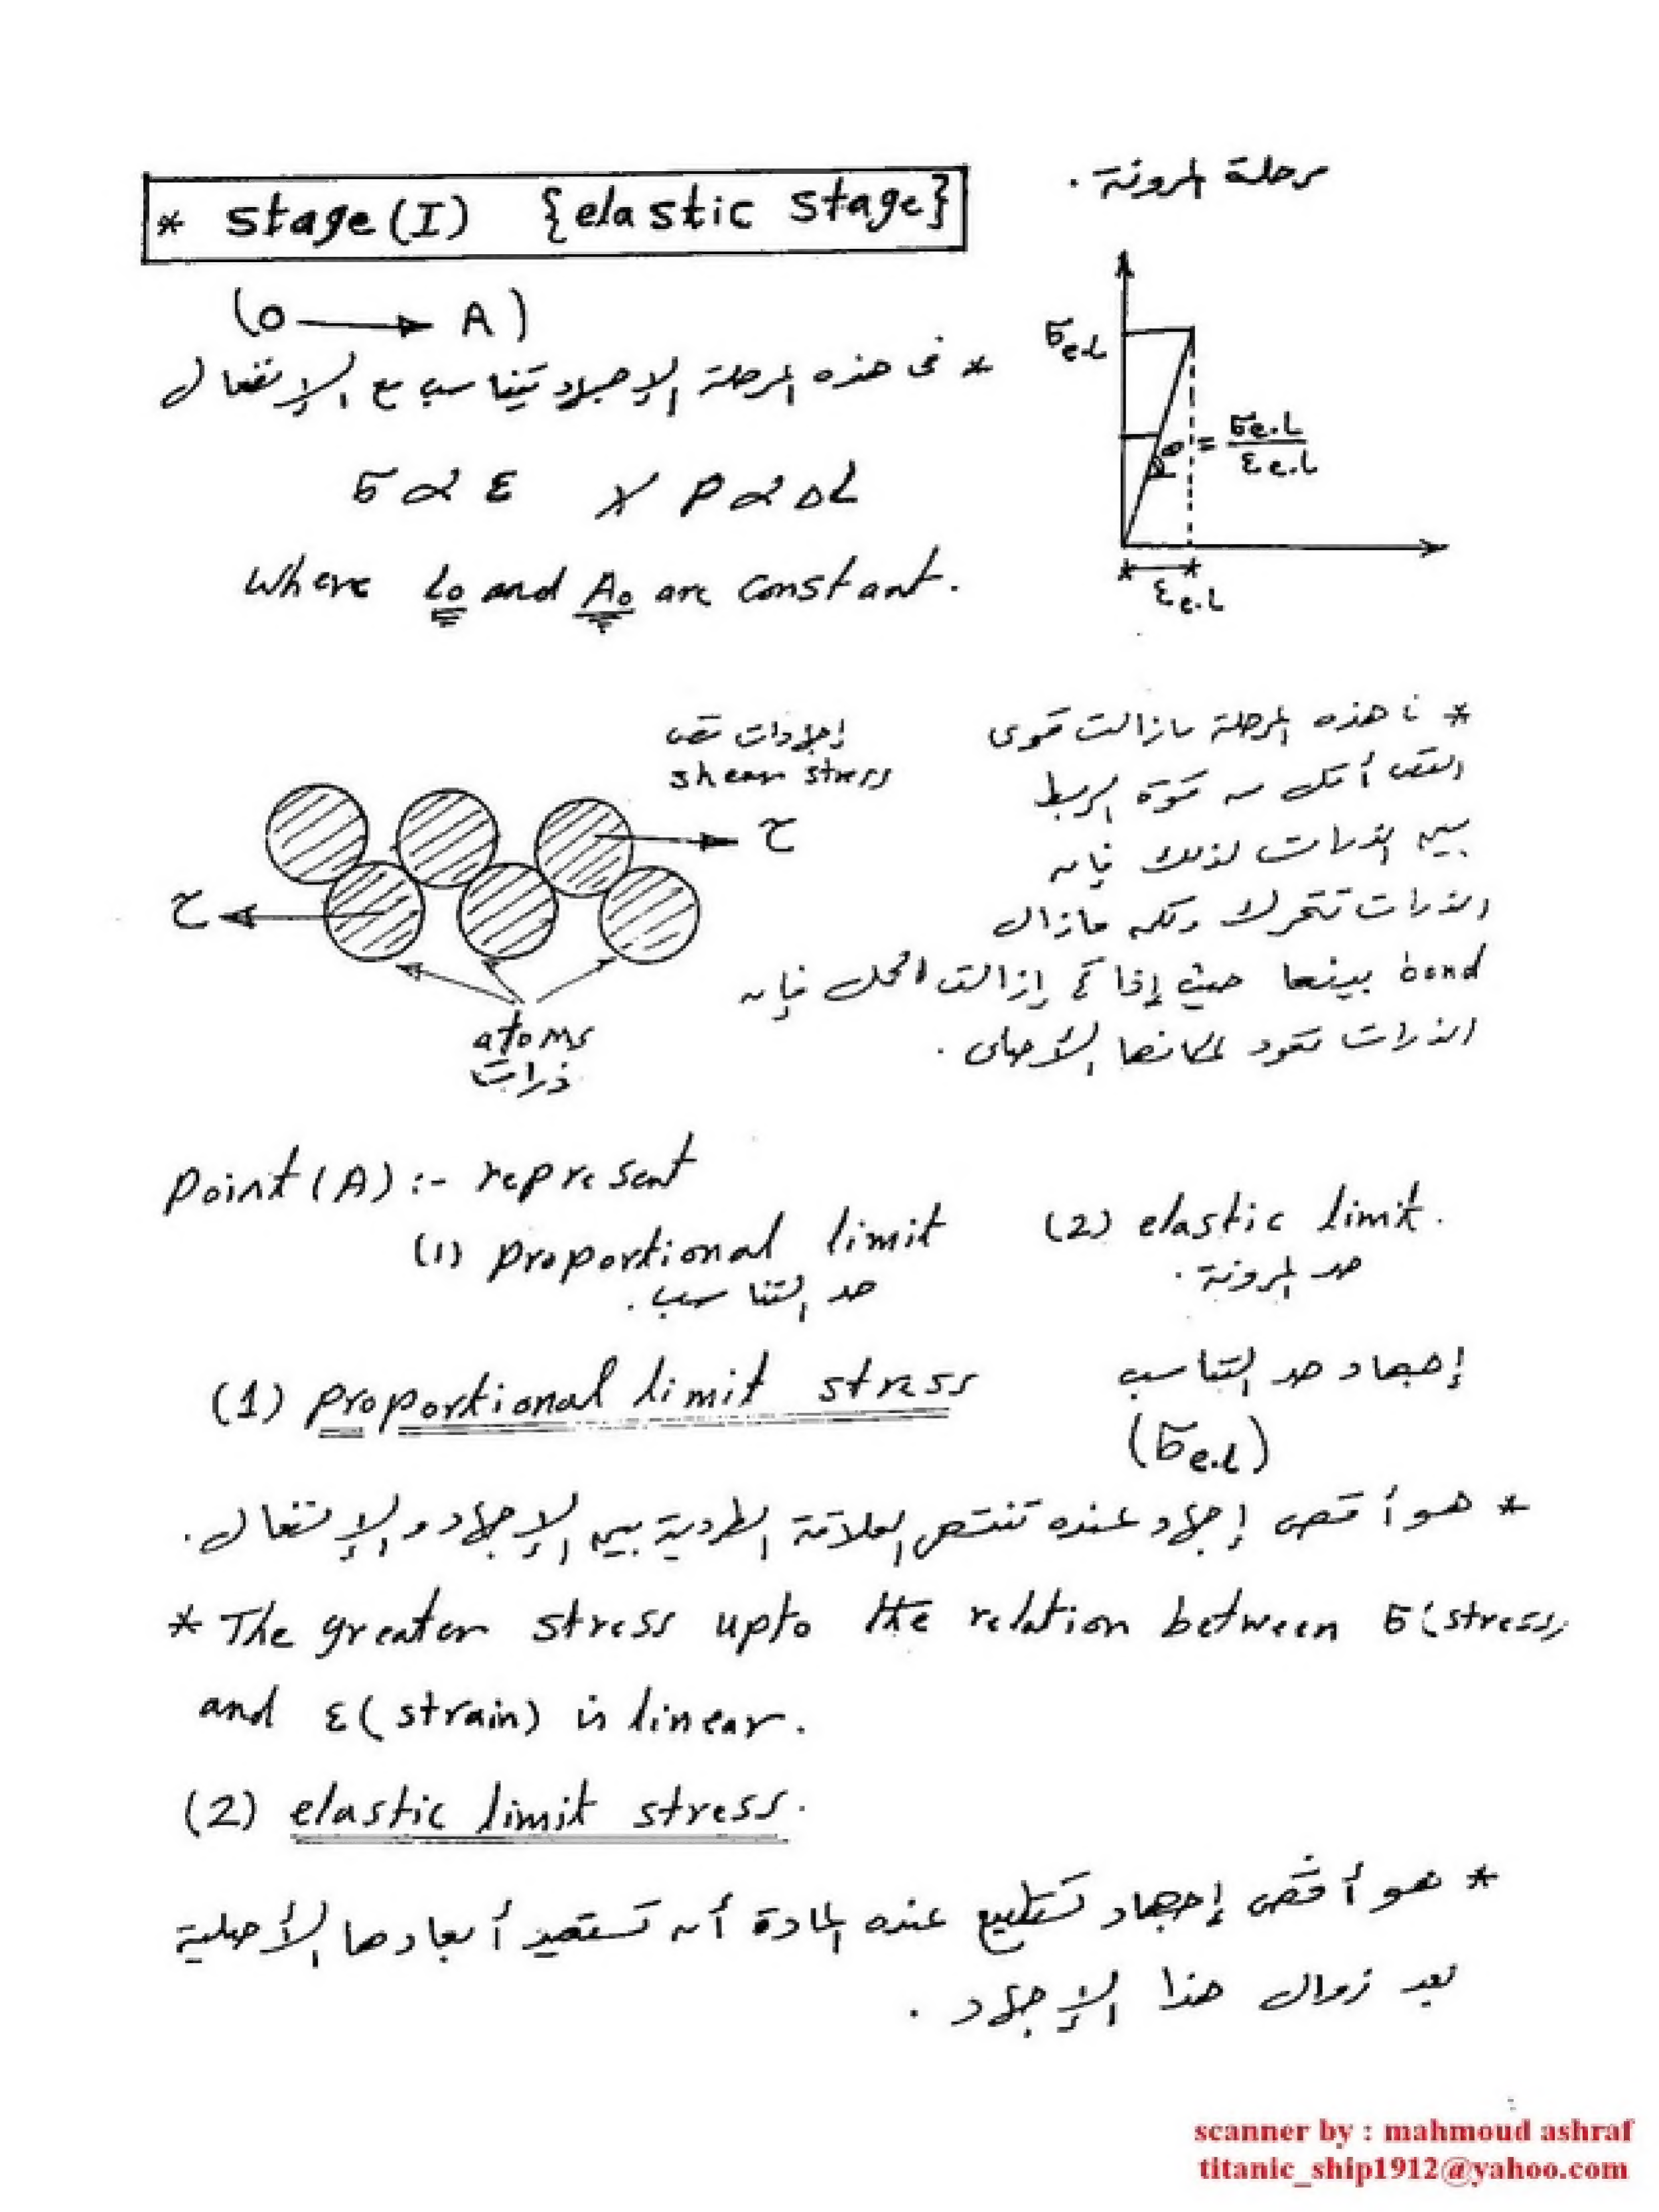 * stage(I) {elastic stage}
مرحلة المرونة .
(O → A)
* فى هذه المرحلة الإجهاد يتناسب مع الإنفعال
σ α ε × P α ΔL
where Lo and Ao are constant.
σe.L
= σe.L / εe.L
εe.L
إجهادات قص
shear stress
τ
τ
atoms
ذرات
* فى هذه المرحلة مازالت قوى
القص أقل من قوة الربط
بين الذرات لذلك فإن
الذرات تتحرك ولكن مازال
bond بينها حيث إذا تم إزالة الحمل فإن
الذرات تعود لمكانها الأصلى .
Point (A) :- represent
(1) proportional limit (2) elastic limit.
حد التناسب . حد المرونة .
(1) proportional limit stress إجهاد حد التناسب
(σe.L)
* هو أقصى إجهاد عنده تنتهى العلاقة الطردية بين الإجهاد والإنفعال .
* The greater stress upto the relation between σ (stress)
and ε (strain) is linear.
(2) elastic limit stress.
* هو أقصى إجهاد تستطيع عنده المادة أن تستعيد أبعادها الأصلية
بعد زوال هذا الإجهاد .
scanner by : mahmoud ashraf
titanic_ship1912@yahoo.com